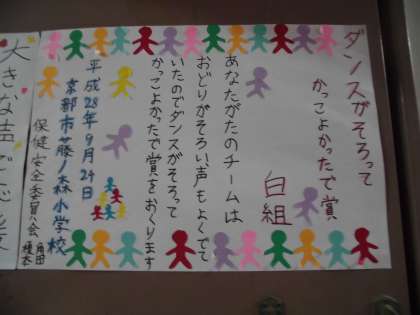 ダンスがそろって
かっこよかったで賞
白組
あなたがたのチームは
おどりがそろい、声もよくでて
いたのでダンスがそろって
かっこよかったで賞をおくります
平成28年9月24日
京都市藤ノ森小学校
保健安全委員会
角田
榎本
大きな声で応援